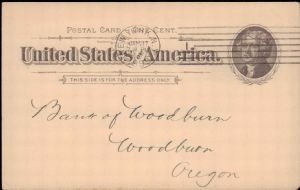 POSTAL CARD - ONE CENT.
United States of America.
THIS SIDE IS FOR THE ADDRESS ONLY.
Bank of Woodburn
Woodburn
Oregon